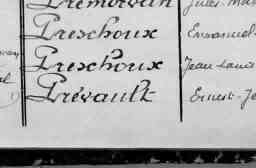 Prémorvan Jules
Preschoux Emmanuel
Preschoux Jean Louis
Prévault Ernest-Jo